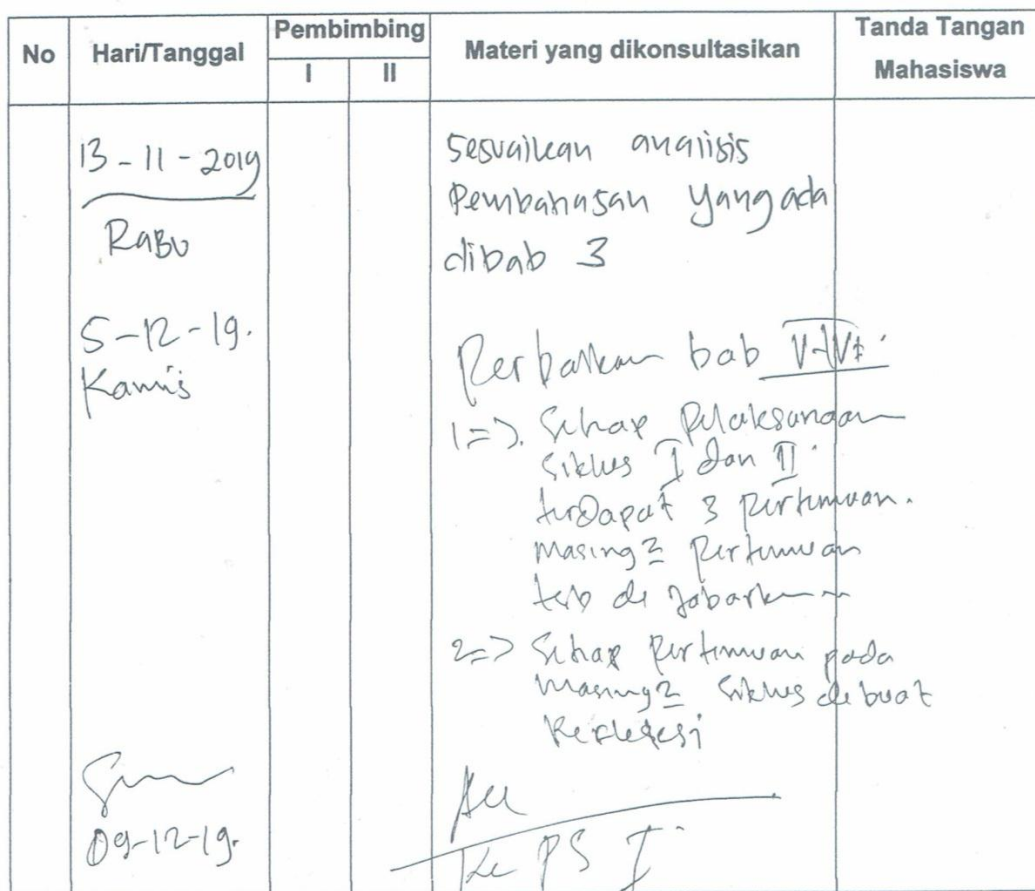 No Hari/Tanggal Pembimbing Materi yang dikonsultasikan Tanda Tangan
I II Mahasiswa
13-11-2019 Sesuaikan analisis
Rabu Pembahasan yang ada
dibab 3
5-12-19. Perbaikan bab
Kamis
1=>. Setiap Pelaksanaan
Siklus I dan II
terdapat 3 pertemuan.
masing2 pertemuan
di jabarkan
2=> Setiap pertemuan pada
masing2 siklus di buat
Refleksi
09-12-19. Acc
Ke PS I